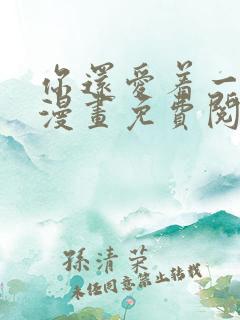 你還愛着一
漫畫免費閱
孫清萊
未经同意禁止转载